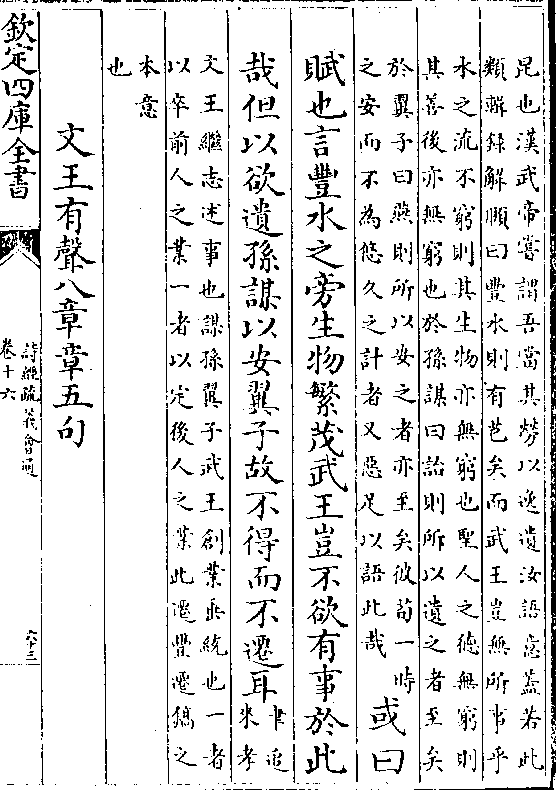 昆也漢武帝嘗謂吾當其勞以逸遺汝語意蓋若此
類輯録解頥曰豐水則有芑矣而武王豈無所事乎
水之流不窮則其生物亦無窮也聖人之德無窮則
其善後亦無窮也於孫謀曰詒則所以遺之者至矣
於翼子曰燕則所以安之者亦至矣彼苟一時
之安而不為悠久之計者又惡足以語此哉
或曰
賦也言豐水之旁生物繁茂武王豈不欲有事於此
哉但以欲遺孫謀以安翼子故不得而不遷耳
聿追
來孝
文王繼志述事也謀孫翼子武王創業垂統也一者
以卒前人之業一者以定後人之業此遷豐遷鎬之
本意
也
文王有聲八章章五句
欽定四庫全書
詩經疏義會通
卷十六
六十三